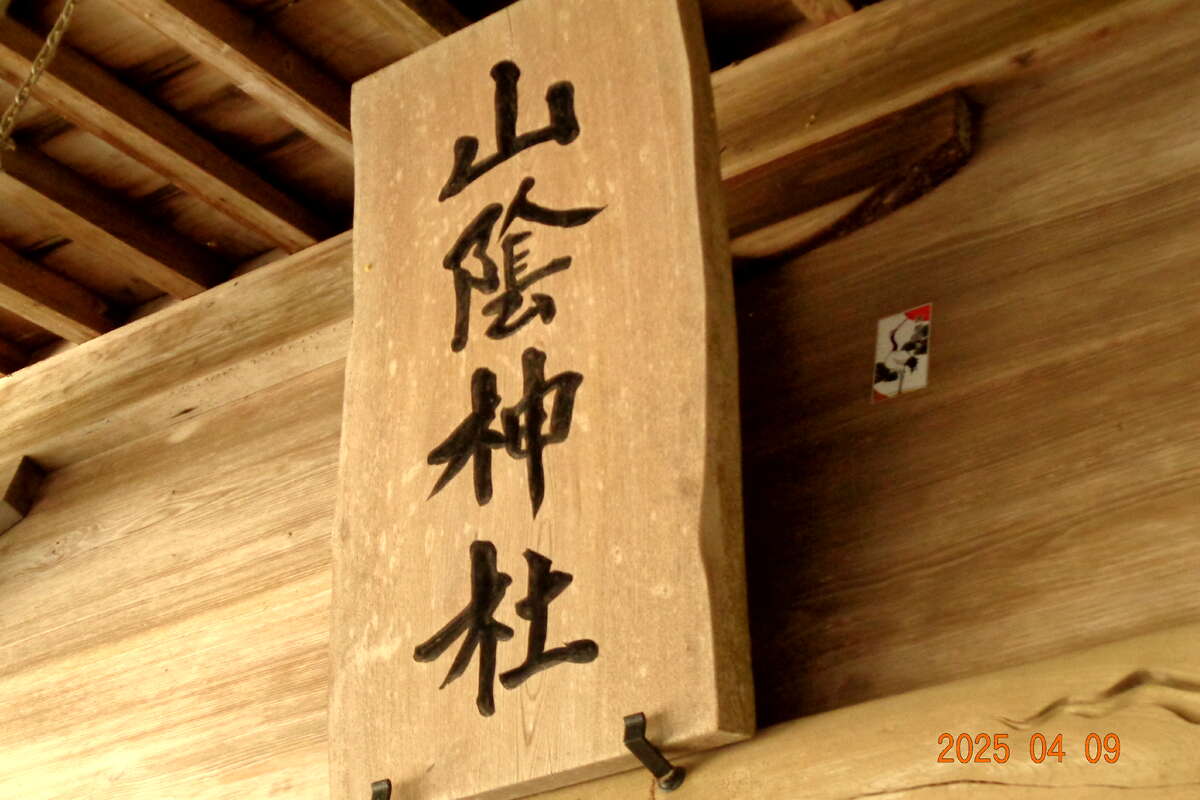 山陰神社
2025 04 09